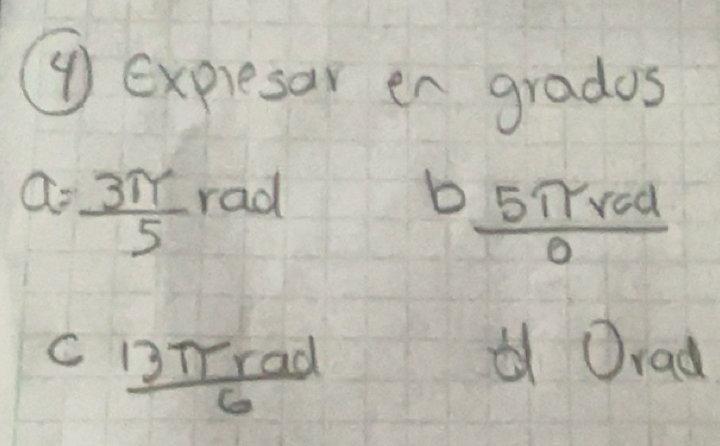 4 Expresar en grados
a= 3π/5 rad b 5π rad/0
c 13π rad/6 d 0 rad